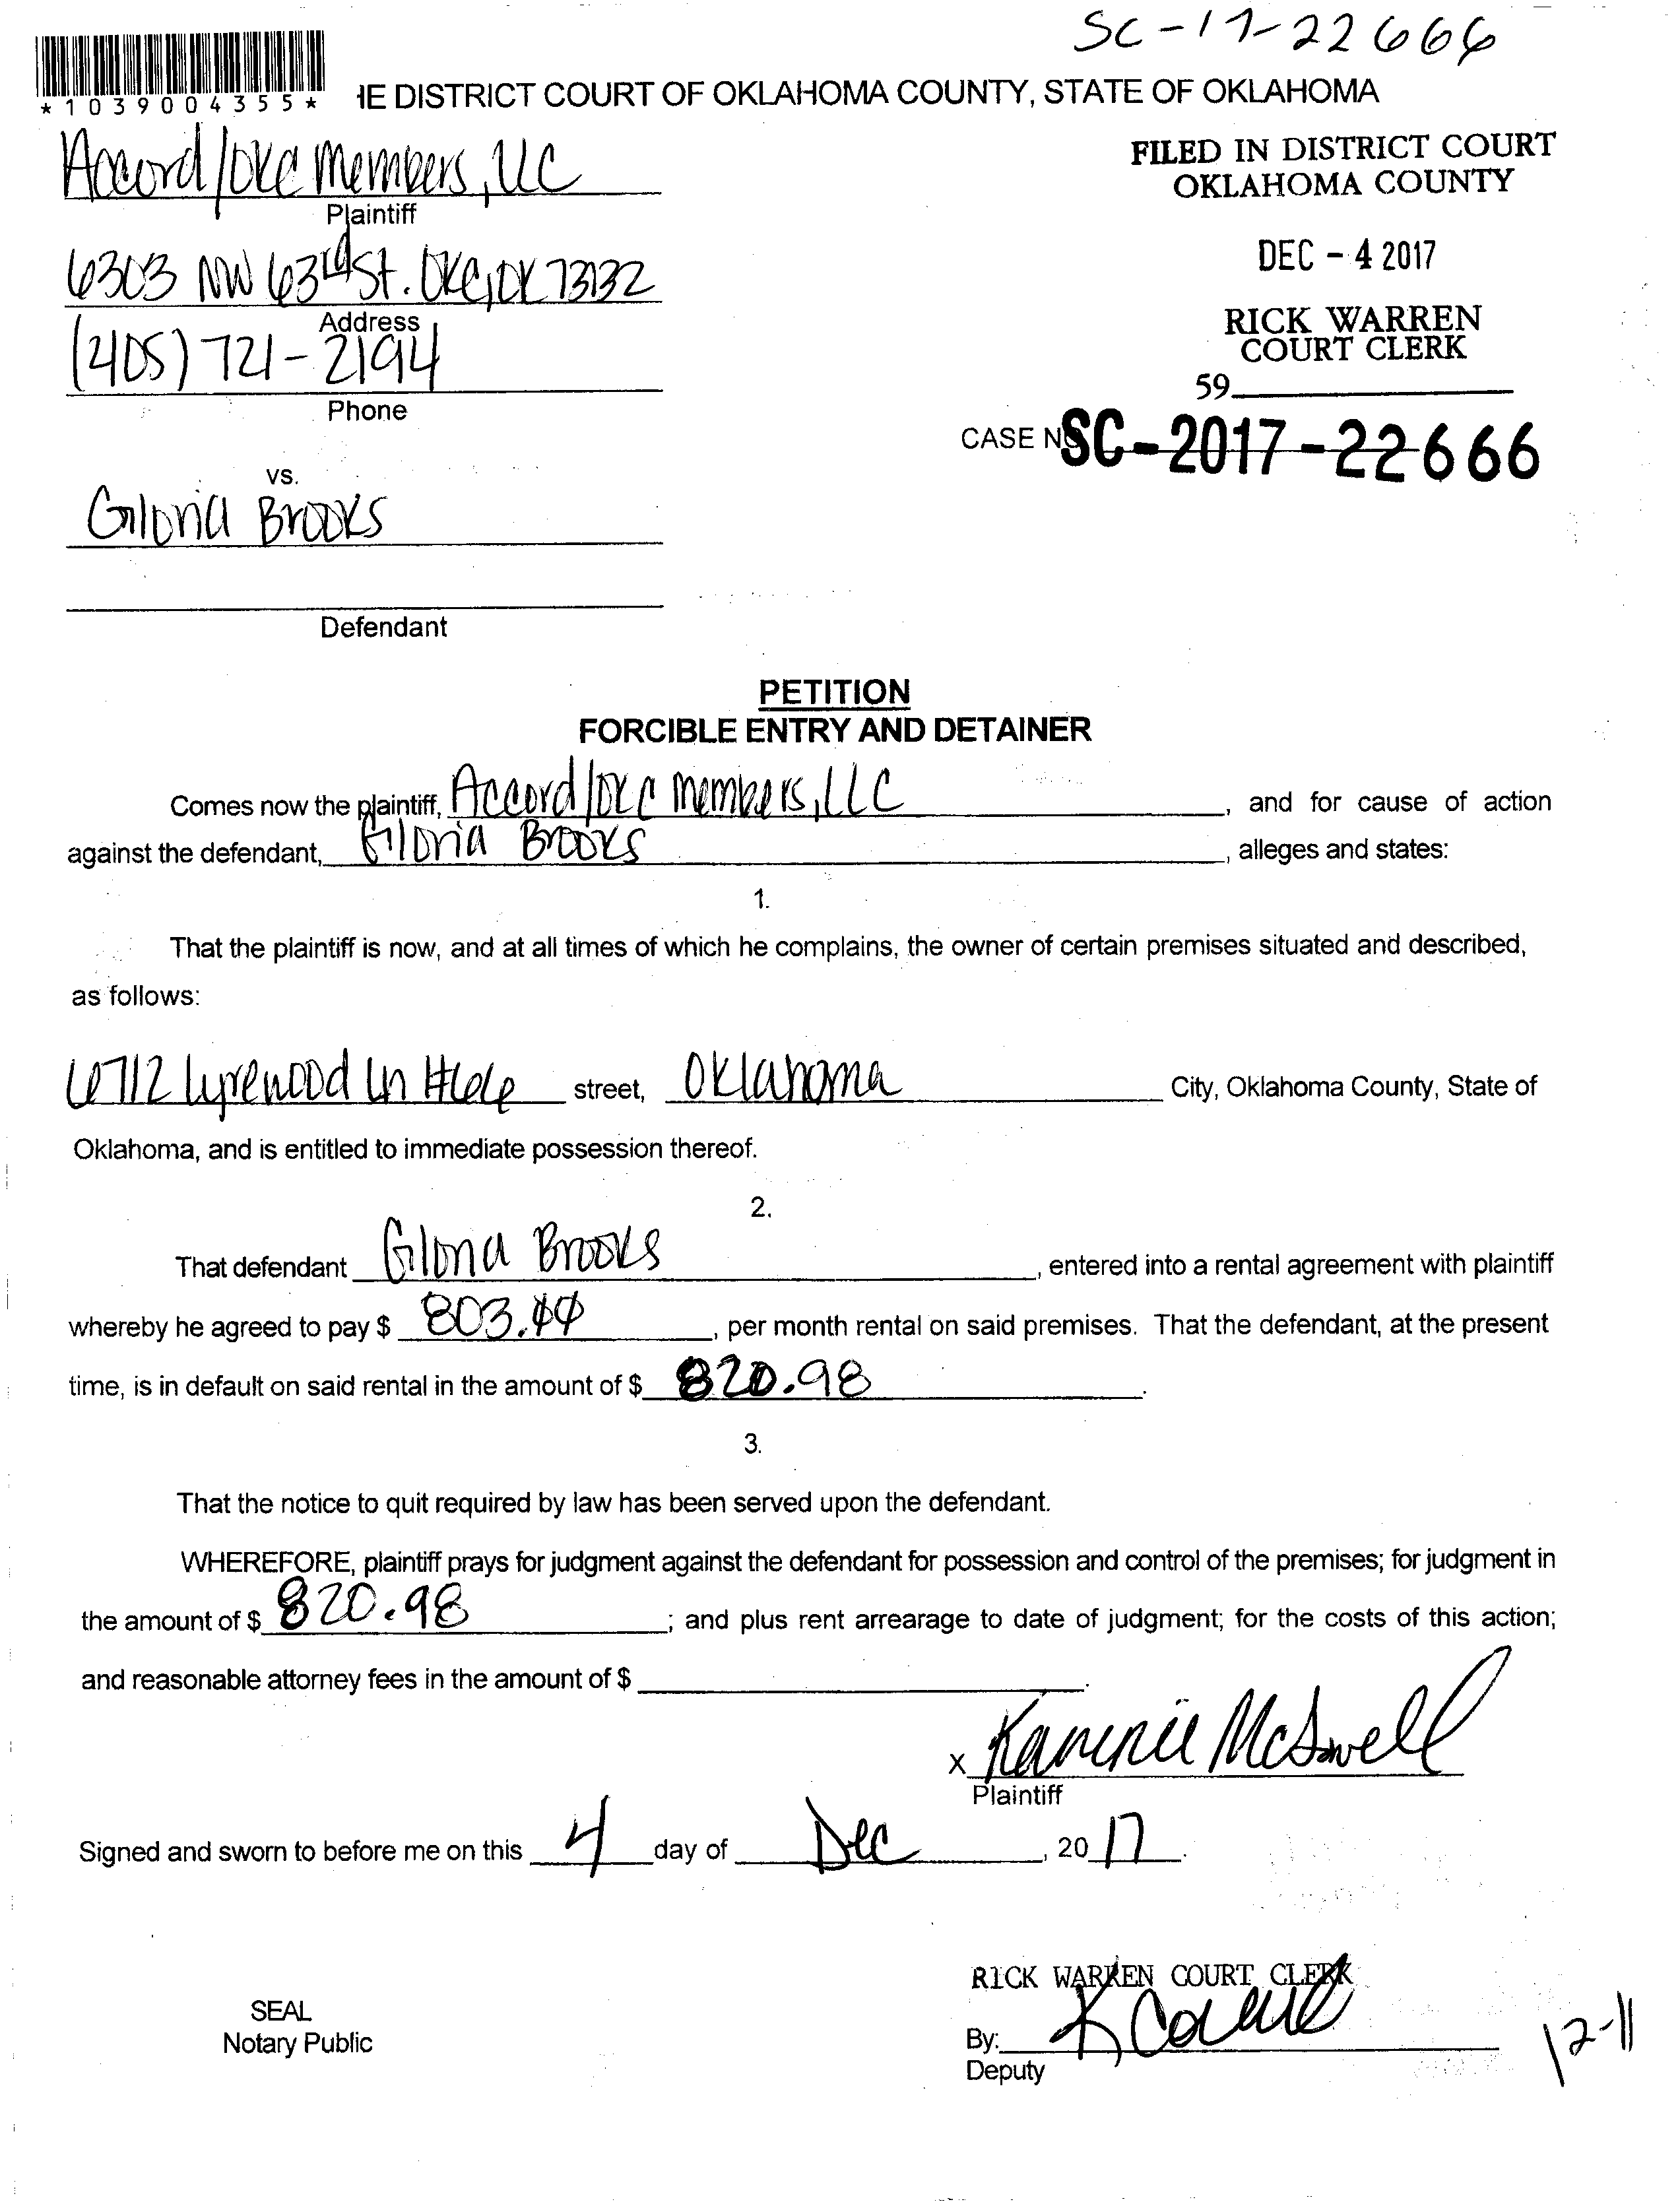 SC-17-22666
*1039004355*
IE DISTRICT COURT OF OKLAHOMA COUNTY, STATE OF OKLAHOMA
Accord/OKC Members, LLC
Plaintiff
6303 NW 63rd St. OKC, OK 73132
Address
(405) 721-2194
Phone
vs.
Gloria Brooks
Defendant
FILED IN DISTRICT COURT
OKLAHOMA COUNTY
DEC - 4 2017
RICK WARREN
COURT CLERK
59
CASE NO SC-2017-22666
PETITION
FORCIBLE ENTRY AND DETAINER
Comes now the plaintiff, Accord/OKC Members, LLC, and for cause of action
against the defendant, Gloria Brooks, alleges and states:
1.
That the plaintiff is now, and at all times of which he complains, the owner of certain premises situated and described,
as follows:
6712 Lyrewood Ln street, Oklahoma City, Oklahoma County, State of
Oklahoma, and is entitled to immediate possession thereof.
2.
That defendant Gloria Brooks, entered into a rental agreement with plaintiff
whereby he agreed to pay $ 803.44, per month rental on said premises. That the defendant, at the present
time, is in default on said rental in the amount of $ 820.98.
3.
That the notice to quit required by law has been served upon the defendant.
WHEREFORE, plaintiff prays for judgment against the defendant for possession and control of the premises; for judgment in
the amount of $ 820.98; and plus rent arrearage to date of judgment; for the costs of this action;
and reasonable attorney fees in the amount of $
x McSwell
Plaintiff
Signed and sworn to before me on this 4 day of Dec, 2017.
RICK WARREN COURT CLERK
SEAL
Notary Public
By:
Deputy
12-11